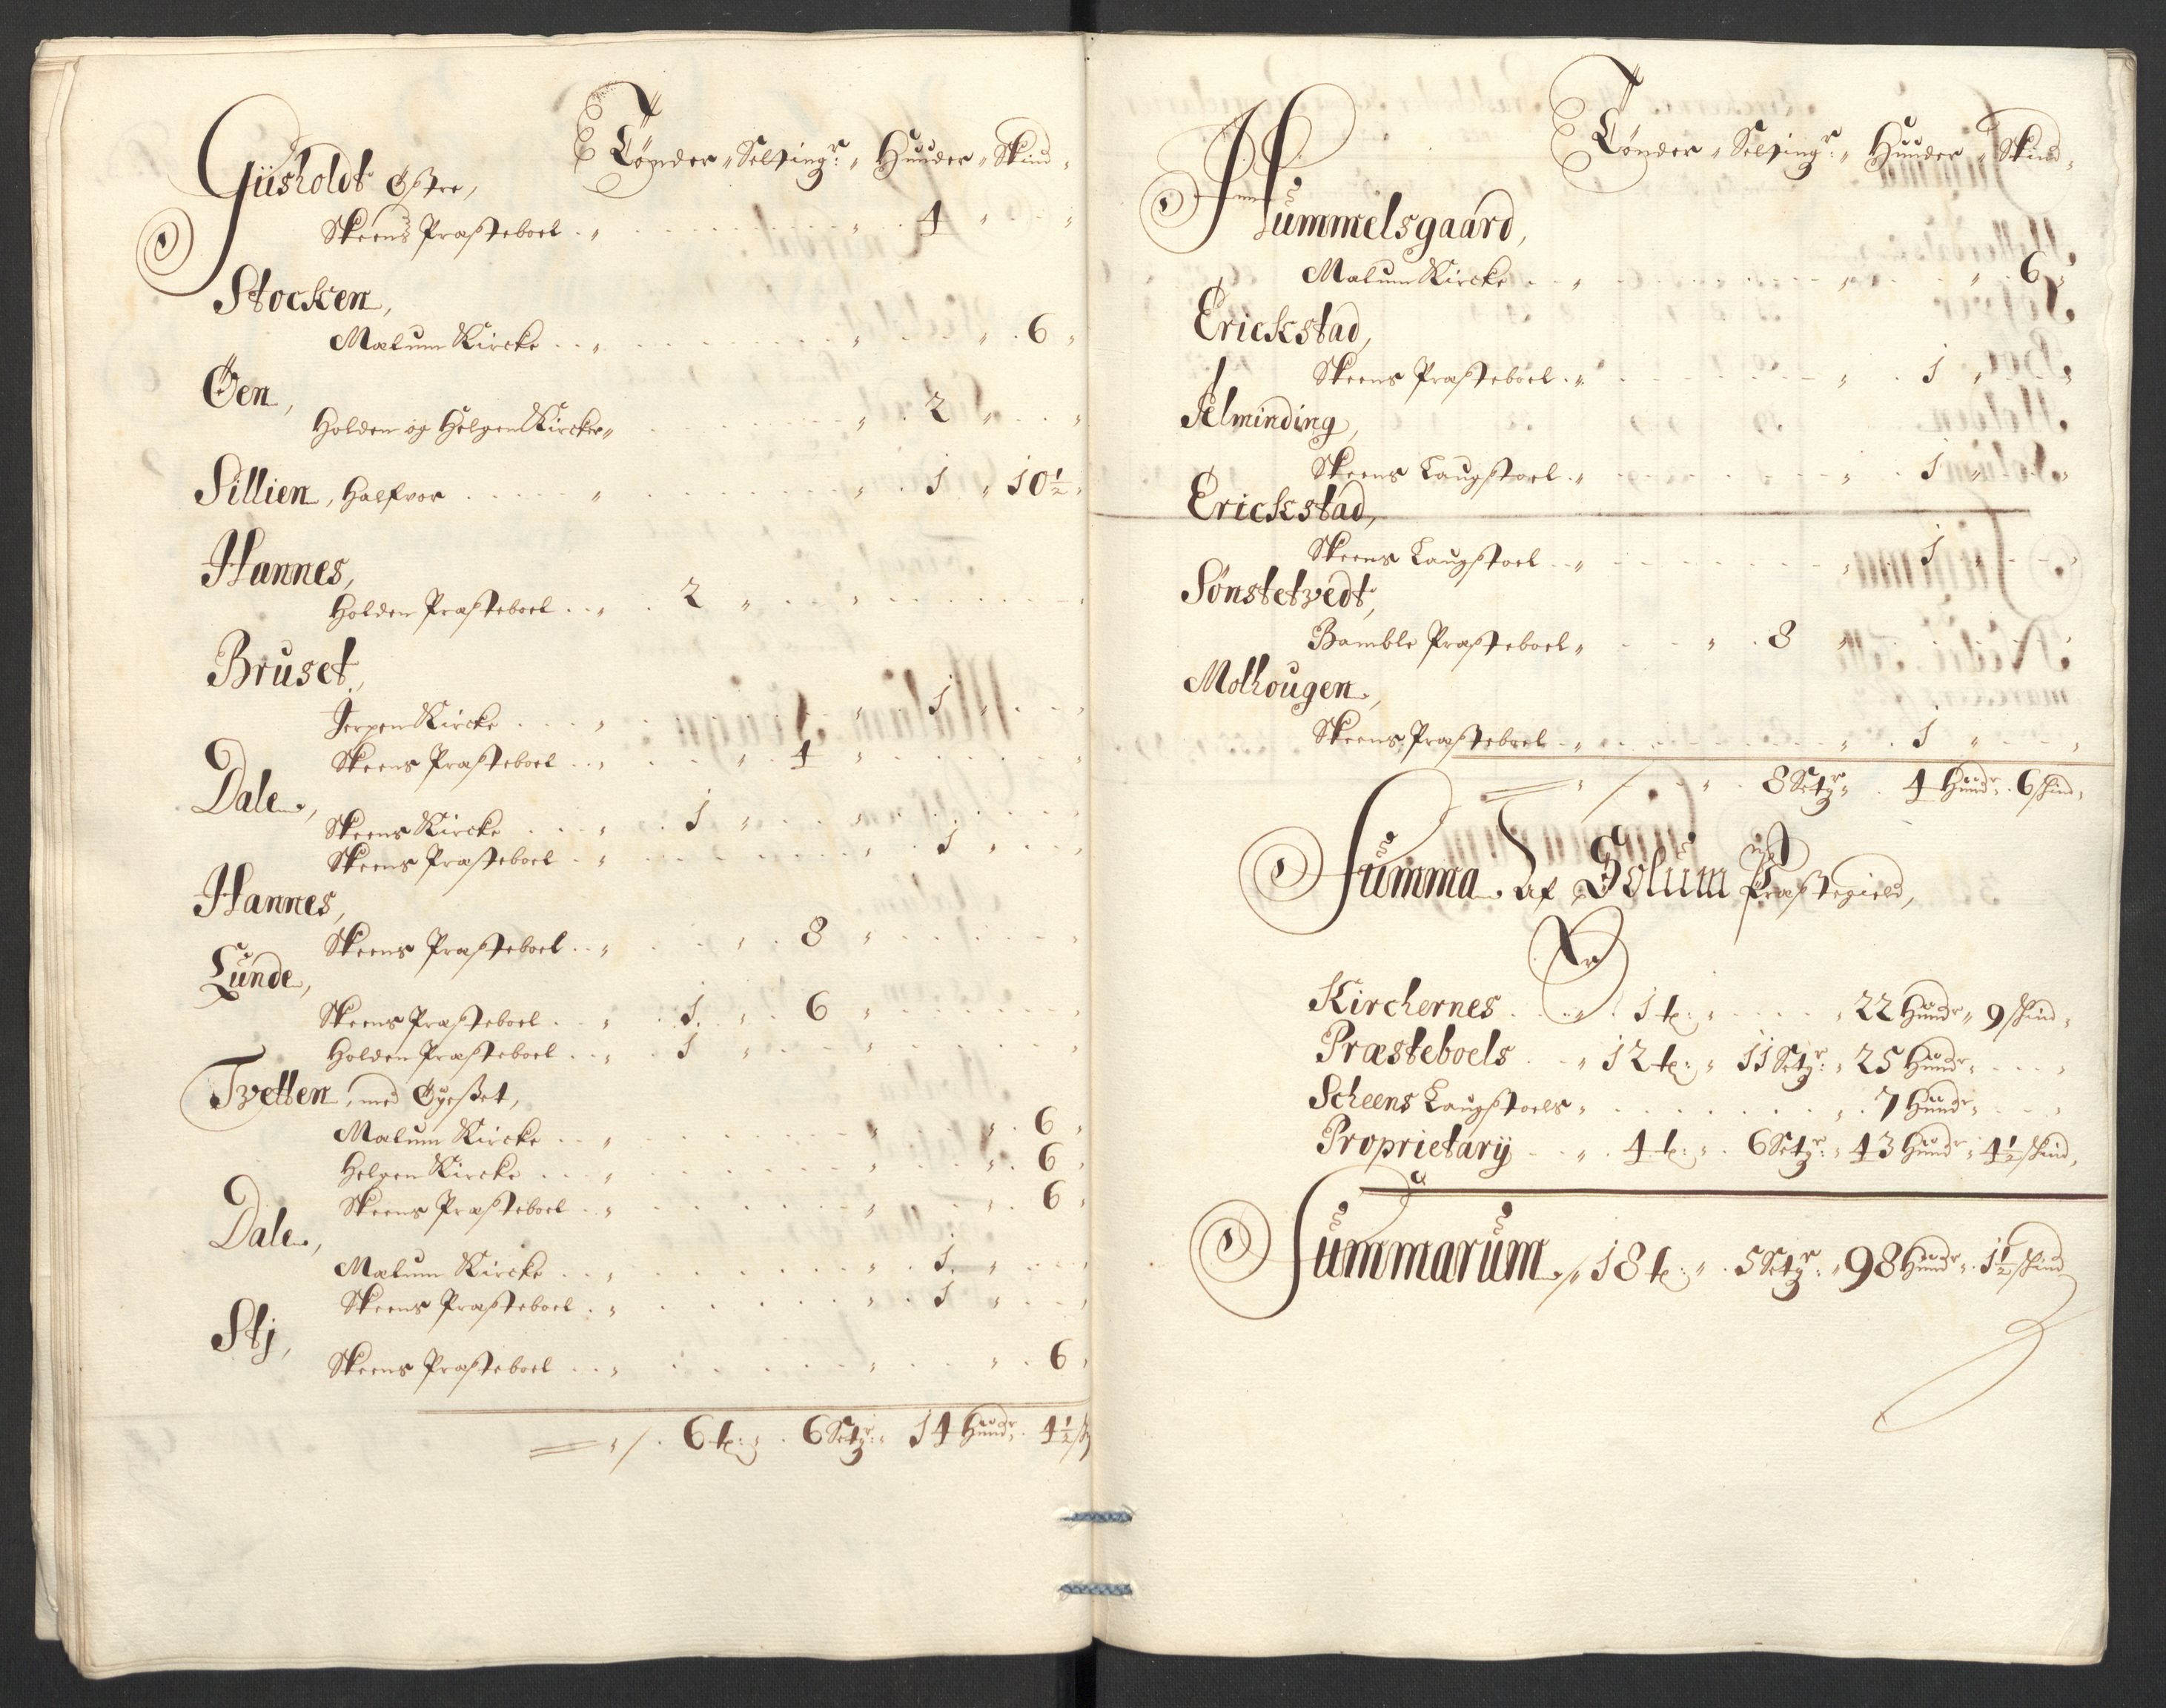 Tønder „ Setting„r „ Huuder „ Skind„
Giisholdt Østre,
Skeens Præsteboel . „ 4 „
Stocken,
Melum Kircke . . „ 6 „
Øen,
Holden og Helgen Kircker „ 2 „
Sillien, Halfvor . . . „ 1 „ 10½
Hannes,
Holden Præsteboel . . „ 2 „
Bruset,
Jerpen Kircke . . . „ 1 „
Skeens Præsteboel . . „ 4 „
Dale,
Skeens Kircke . . . „ 1 „
Skeens Præsteboel . . „ 1 „
Hannes,
Skeens Præsteboel . . „ 8 „
Lunde,
Skeens Præsteboel . . „ 1 „ 6 „
Holden Præsteboel . . „ 1 „
Tvetten, med Øyesset,
Melum Kircke . . „ 6 „
Helgen Kircke . . . „ 6 „
Skeens Præsteboel . . „ 6 „
Dale,
Melum Kircke . . „ 1 „
Skeens Præsteboel . „ 1 „
Stj,
Skeens Præsteboel . . „ 6 „
„ /. 6 t: „ 6 Setgr: „ 14 Hundr „ 4½ sk
Tønder „ Setting„r: „ Huuder „ Skind„
Hummelsgaard,
Melum Kircke . . „ 6 „
Erickstad,
Skeens Præsteboel . „ 1 „
Alminding,
Skeens Laugstoel . „ 1 „
Erickstad,
Skeens Laugstoel . . „ 1 „
Sønstetvedt,
Bamble Præsteboel „ 8 „
Molhougen,
Skeens Præsteboel . . „ 1 „
„ / 8 Setgr „ 4 Hundr „ 6 skind„
Summa Af Solum Præstegield,
Kirchernes . . . „ 1 t: „ 22 Hundr „ 9 skind„
Præsteboels . . „ 12 t: „ 11 Setgr: „ 25 Hundr „
Scheens Laugstoels „ 7 Hundr „
Proprietarij . . „ 4 t: „ 6 Setgr: „ 43 Hundr „ 4½ skind„
Summarum „/ 18 t: „ 5 Setgr: „ 98 Hundr „ 1½ skind